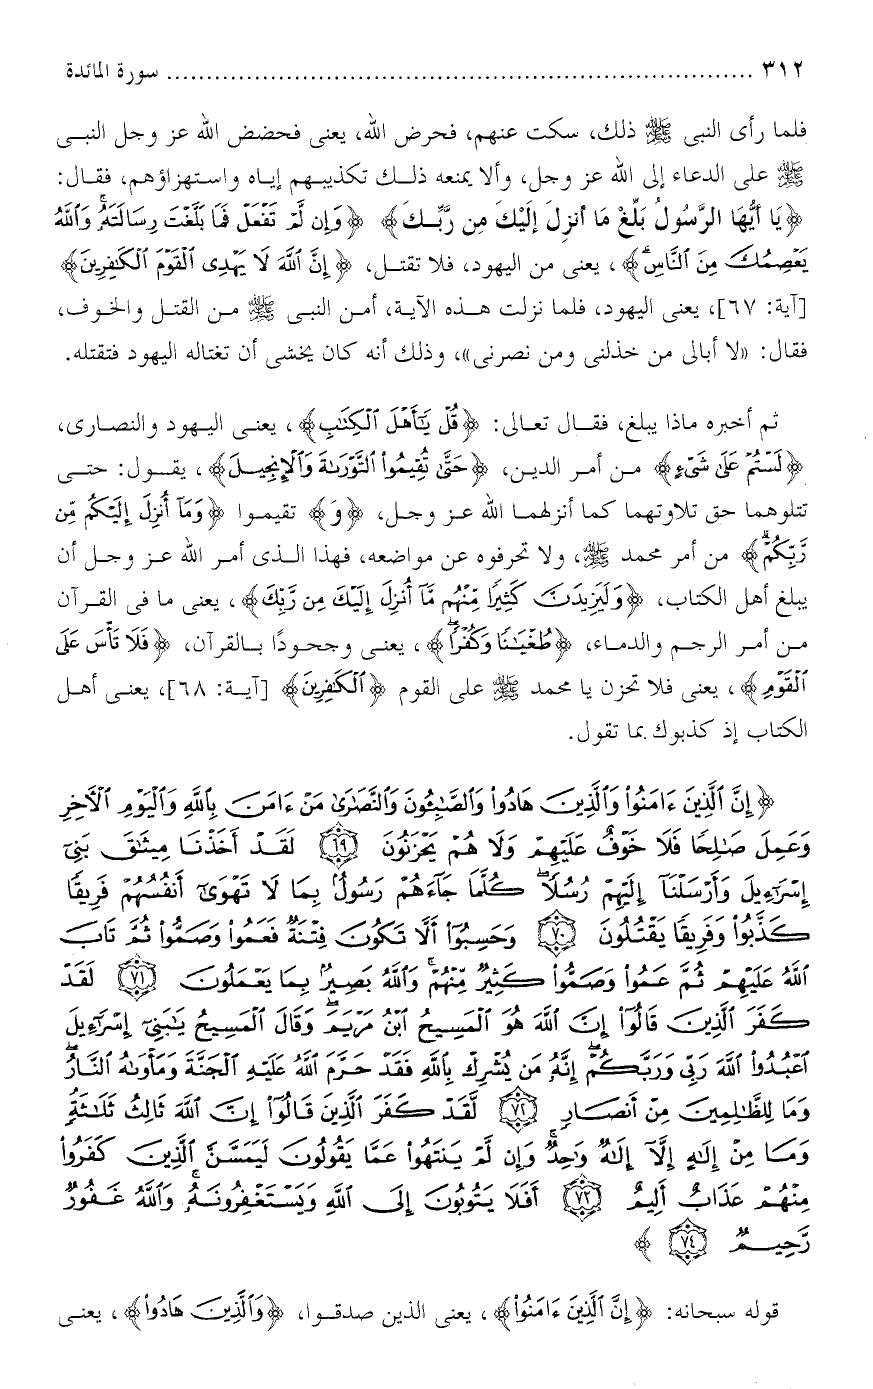 ٣١٢ ........................................................................... سورة المائدة
فلما رأى النبى ﷺ ذلك، سكت عنهم، فحرض الله، يعنى فحضض الله عز وجل النبى
ﷺ على الدعاء إلى الله عز وجل، وألا يمنعه ذلك تكذيبهم إياه واستهزاؤهم، فقال:
﴿يَا أَيُّهَا الرَّسُولُ بَلِّغْ مَا أُنزِلَ إِلَيْكَ مِن رَّبِّكَ﴾ ﴿وَإِن لَّمْ تَفْعَلْ فَمَا بَلَّغْتَ رِسَالَتَهُۥۚ وَٱللَّهُ
يَعْصِمُكَ مِنَ ٱلنَّاسِۗ﴾، يعنى من اليهود، فلا تقتل، ﴿إِنَّ ٱللَّهَ لَا يَهْدِى ٱلْقَوْمَ ٱلْكَٰفِرِينَ﴾
[آية: ٦٧]، يعنى اليهود، فلما نزلت هذه الآية، أمن النبى ﷺ من القتل والخوف،
فقال: «لا أبالى من خذلنى ومن نصرنى»، وذلك أنه كان يخشى أن تغتاله اليهود فتقتله.
ثم أخبره ماذا يبلغ، فقال تعالى: ﴿قُلْ يَٰٓأَهْلَ ٱلْكِتَٰبِ﴾، يعنى اليهود والنصارى،
﴿لَسْتُمْ عَلَىٰ شَىْءٍ﴾ من أمر الدين، ﴿حَتَّىٰ تُقِيمُوا۟ ٱلتَّوْرَىٰةَ وَٱلْإِنجِيلَ﴾، يقول: حتى
تتلوهما حق تلاوتهما كما أنزلهما الله عز وجل، ﴿وَ﴾ تقيموا ﴿وَمَآ أُنزِلَ إِلَيْكُم مِّن
رَّبِّكُمْۗ﴾ من أمر محمد ﷺ، ولا تحرفوه عن مواضعه، فهذا الذى أمر الله عز وجل أن
يبلغ أهل الكتاب، ﴿وَلَيَزِيدَنَّ كَثِيرًا مِّنْهُم مَّآ أُنزِلَ إِلَيْكَ مِن رَّبِّكَ﴾، يعنى ما فى القرآن
من أمر الرجم والدماء، ﴿طُغْيَٰنًا وَكُفْرًاۖ﴾، يعنى وجحودًا بالقرآن، ﴿فَلَا تَأْسَ عَلَى
ٱلْقَوْمِ﴾، يعنى فلا تحزن يا محمد ﷺ على القوم ﴿ٱلْكَٰفِرِينَ﴾ [آية: ٦٨]، يعنى أهل
الكتاب إذ كذبوك بما تقول.
﴿إِنَّ ٱلَّذِينَ ءَامَنُوا۟ وَٱلَّذِينَ هَادُوا۟ وَٱلصَّٰبِـُٔونَ وَٱلنَّصَٰرَىٰ مَنْ ءَامَنَ بِٱللَّهِ وَٱلْيَوْمِ ٱلْأَخِرِ
وَعَمِلَ صَٰلِحًا فَلَا خَوْفٌ عَلَيْهِمْ وَلَا هُمْ يَحْزَنُونَ ۝٦٩ لَقَدْ أَخَذْنَا مِيثَٰقَ بَنِىٓ
إِسْرَٰٓءِيلَ وَأَرْسَلْنَآ إِلَيْهِمْ رُسُلًاۖ كُلَّمَا جَآءَهُمْ رَسُولٌۢ بِمَا لَا تَهْوَىٰٓ أَنفُسُهُمْ فَرِيقًا
كَذَّبُوا۟ وَفَرِيقًا يَقْتُلُونَ ۝٧٠ وَحَسِبُوٓا۟ أَلَّا تَكُونَ فِتْنَةٌ فَعَمُوا۟ وَصَمُّوا۟ ثُمَّ تَابَ
ٱللَّهُ عَلَيْهِمْ ثُمَّ عَمُوا۟ وَصَمُّوا۟ كَثِيرٌ مِّنْهُمْۚ وَٱللَّهُ بَصِيرٌۢ بِمَا يَعْمَلُونَ ۝٧١ لَقَدْ
كَفَرَ ٱلَّذِينَ قَالُوٓا۟ إِنَّ ٱللَّهَ هُوَ ٱلْمَسِيحُ ٱبْنُ مَرْيَمَۖ وَقَالَ ٱلْمَسِيحُ يَٰبَنِىٓ إِسْرَٰٓءِيلَ
ٱعْبُدُوا۟ ٱللَّهَ رَبِّى وَرَبَّكُمْۖ إِنَّهُۥ مَن يُشْرِكْ بِٱللَّهِ فَقَدْ حَرَّمَ ٱللَّهُ عَلَيْهِ ٱلْجَنَّةَ وَمَأْوَىٰهُ ٱلنَّارُۖ
وَمَا لِلظَّٰلِمِينَ مِنْ أَنصَارٍ ۝٧٢ لَّقَدْ كَفَرَ ٱلَّذِينَ قَالُوٓا۟ إِنَّ ٱللَّهَ ثَالِثُ ثَلَٰثَةٍۘ
وَمَا مِنْ إِلَٰهٍ إِلَّآ إِلَٰهٌ وَٰحِدٌۚ وَإِن لَّمْ يَنتَهُوا۟ عَمَّا يَقُولُونَ لَيَمَسَّنَّ ٱلَّذِينَ كَفَرُوا۟
مِنْهُمْ عَذَابٌ أَلِيمٌ ۝٧٣ أَفَلَا يَتُوبُونَ إِلَى ٱللَّهِ وَيَسْتَغْفِرُونَهُۥۚ وَٱللَّهُ غَفُورٌ
رَّحِيمٌ ۝٧٤ ﴾
قوله سبحانه: ﴿إِنَّ ٱلَّذِينَ ءَامَنُوا۟﴾، يعنى الذين صدقوا، ﴿وَٱلَّذِينَ هَادُوا۟﴾، يعنى